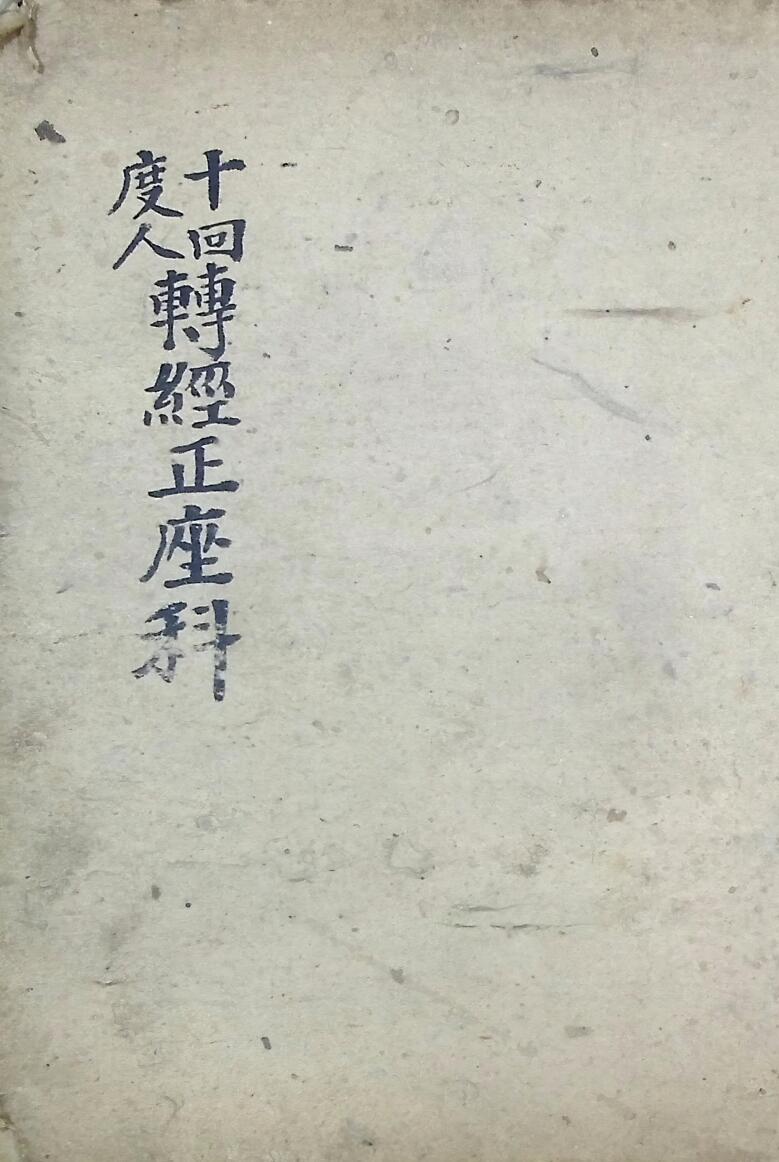 十回度人轉經正座科